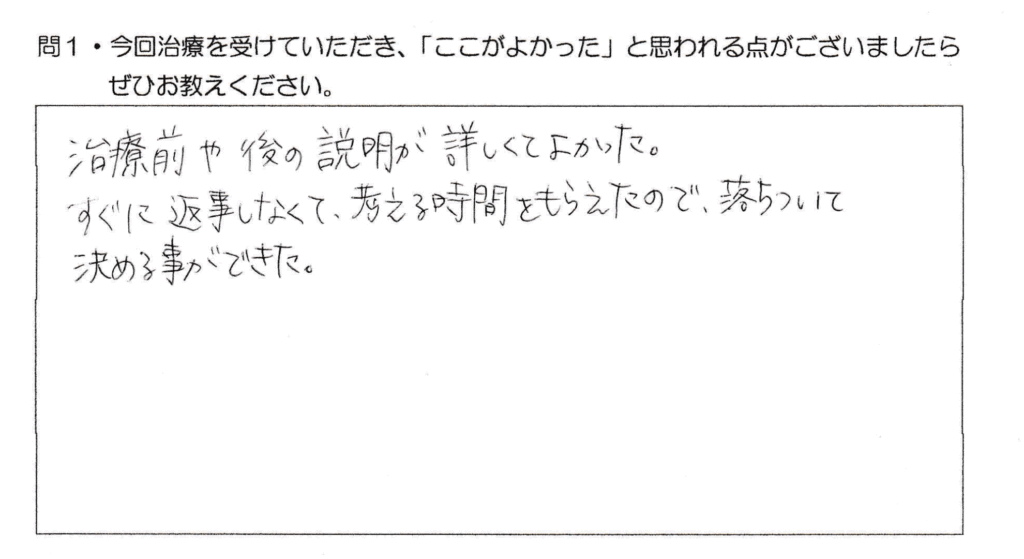 問1・今回治療を受けていただき、「ここがよかった」と思われる点がございましたら
ぜひお教えください。
治療前や後の説明が詳しくてよかった。
すぐに返事しなくて、考える時間をもらえたので、落ちついて
決める事ができた。